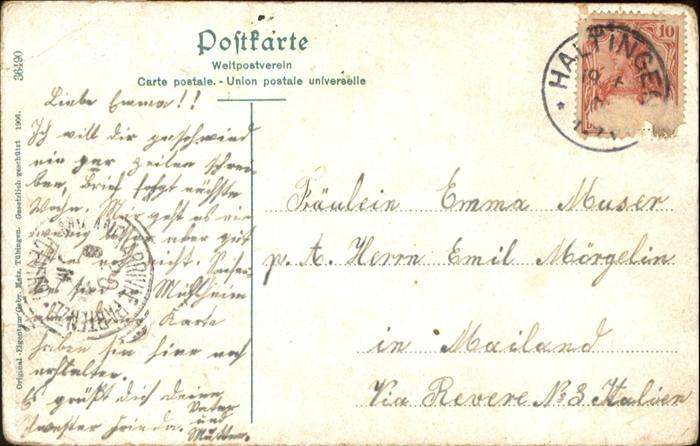 Postkarte
Weltpostverein
Carte postale. - Union postale universelle
36490
Original-Eigentum Gebr. Metz, Tübingen. Gesetzlich geschützt 1906.
10
HALTINGEN
Liebe Emma!!
Ich will dir geschwind
ein par Zeilen schrei
ben, Brief folgt nächste
Mir geht es
aber gut
nicht.
Müllheim
Karte
haben sie hier noch
erhalten.
Es grüßt dich deine
Schwester Frieda. Vater
und
Mutter.
Fräulein Emma Muser
p. A. Herrn Emil Mörgelin
in Mailand
Via Revere No 3 Italien